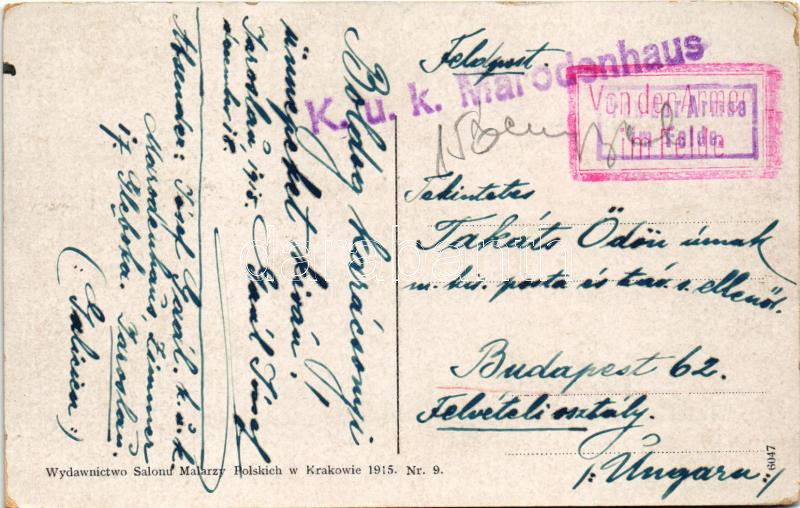 Boldog karácsonyi
ünnepeket kiván!
Jaroslau, 1915. Gaál József
december 18.
Absender: József Gaál. k. u. k.
Marodenhaus, Zimmer
17. Głęboka. Jaroslau.
(: Galicien :)
Feldpost.
K. u. k. Marodenhaus
Von der Armee
im Felde
Tekintetes
Takáts Ödön úrnak
m. kir. posta és táv. s. ellenőr.
Budapest 62.
Felvételi osztály.
/: Ungarn :/
Wydawnictwo Salonu Malarzy Polskich w Krakowie 1915. Nr. 9.
6047
darabanth